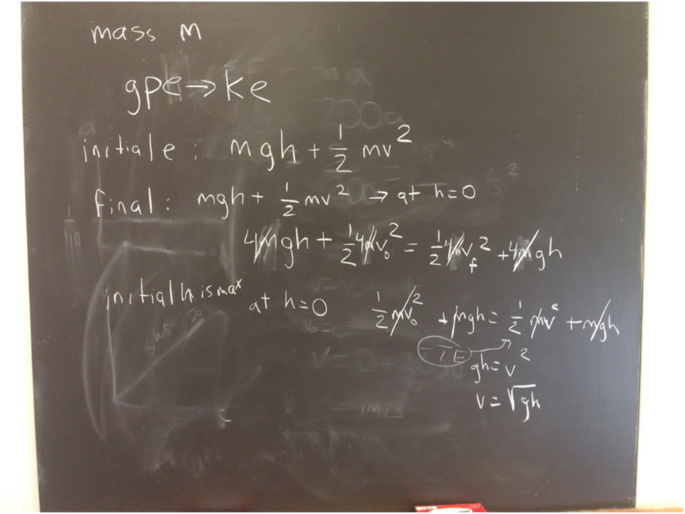 mass m
gpe → ke
initial e: mgh + 1/2 mv²
final: mgh + 1/2 mv² → at h=0
4mgh + 1/2 4mv₀² = 1/2 4mv_f² + 4mgh
initial h is max at h=0 1/2 mv₀² + mgh = 1/2 mv² + mgh
TE
gh = v²
v = √gh